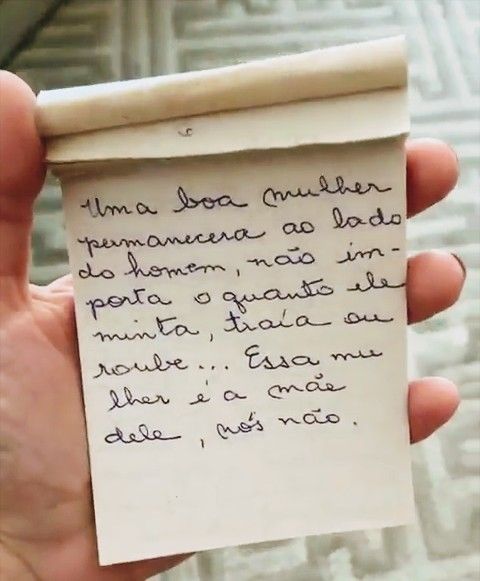 Uma boa mulher
permanecera ao lado
do homem, não im-
porta o quanto ele
minta, traía ou
roube... Essa mu
lher é a mãe
dele, nós não.